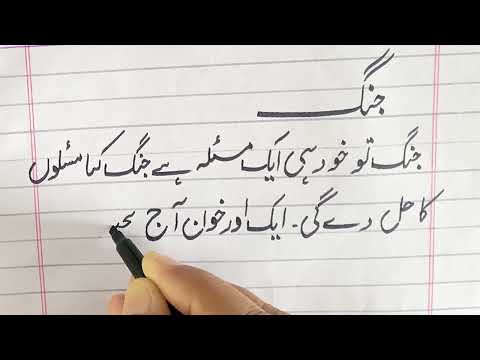 جنگ
جنگ تو خود ہی ایک مسئلہ ہے جنگ کیا مسئلوں
کا حل دے گی۔ ایک اور خون آج